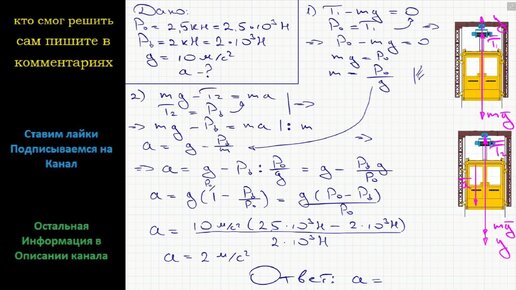 кто смог решить
сам пишите в
комментариях
Ставим лайки
Подписываемся на
Канал
Остальная
Информация в
Описании канала
Дано:
P₀ = 2,5 кН = 2,5·10³ Н
P₁ = 2 кН = 2·10³ Н
g = 10 м/с²
a - ?
1) T₁ - mg = 0
P₀ = T₁ ⇒
⇒ P₀ - mg = 0
m = P₀/g
2) mg - T₂ = ma | ⇒
T₂ = P₁
⇒ mg - P₁ = ma |: m ⇒
⇒ a = g - P₁/m
a = g - P₁ : P₀/g = g - P₁g/P₀
a = g(1 - P₁/P₀) = g(P₀ - P₁)/P₀
a = 10 м/с² (2,5·10³ Н - 2·10³ Н) / 2·10³ Н
a = 2 м/с²
Ответ: a =
T₁
mg
T₂
a
mg
y